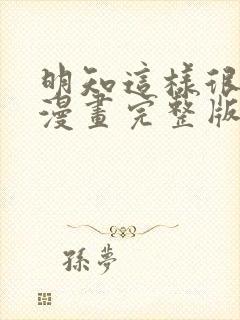 明知這樣很
漫畫完整版
孫夢